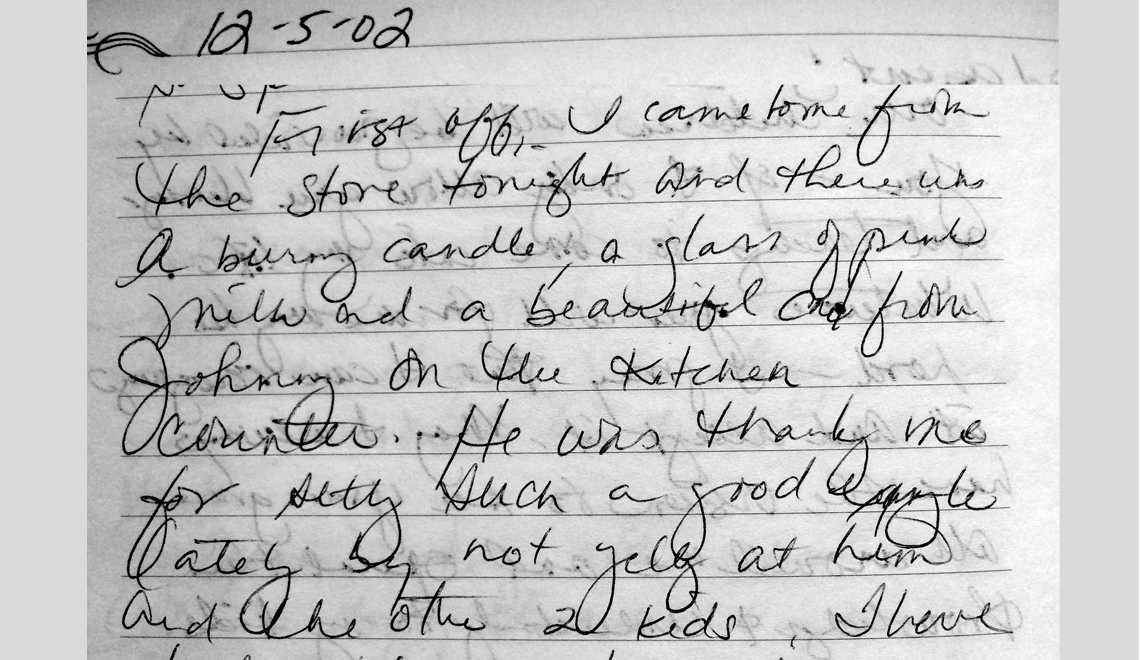 12-5-02
First off, I came home from
the store tonight and there was
a burng candle, a glass of pink
milk and a beautiful card from
Johnny on the kitchen
counter. He was thankg me
for settg such a good example
lately by not yellg at him
and the other 2 kids. I have